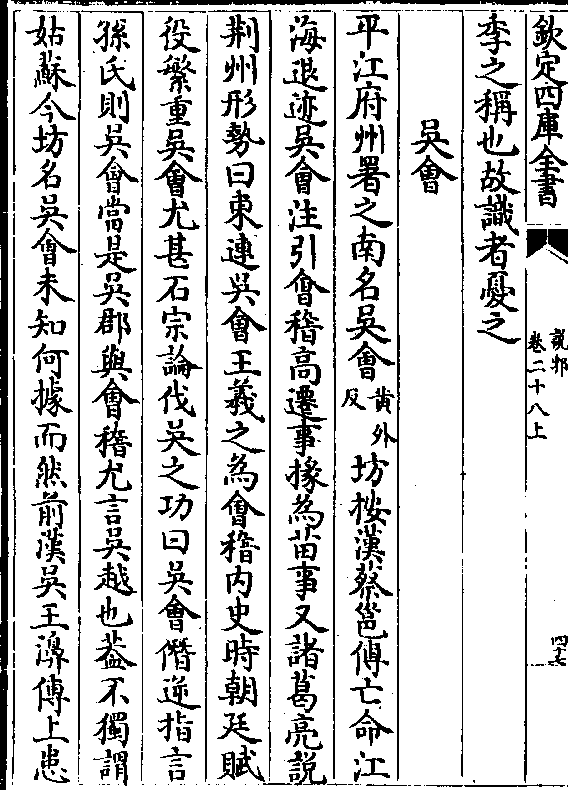 欽定四庫全書
説郛
卷二十八上
四七
季之稱也故識者憂之
吳會
平江府州署之南名吳會黄外反坊按漢蔡邕傳亡命江
海退迹吳會注引會稽高遷事掾為笛事又諸葛亮説
荆州形勢曰東連吳會王羲之為會稽内史時朝廷賦
役繁重吳會尤甚石宗論伐吳之功曰吳會僭逆指言
孫氏則吳會當是吳郡與會稽尤言吳越也葢不獨謂
姑蘇今坊名吳會未知何據而然前漢吳王濞傳上患